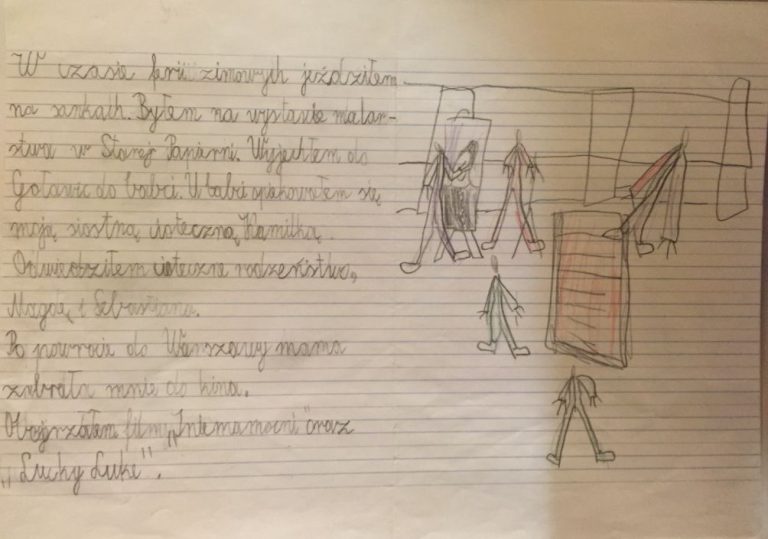 W czasie ferii zimowych jeździłem
na sankach. Byłem na wystawie malar-
stwa w Starej Papierni. Wyjechłem do
Goławic do babci. U babci opiekowałem się
moją siostrą cioteczną, Kamilką.
Odwiedziłem cioteczne rodzeństwo,
Magdę i Sebastiana.
Po powrocie do Warszawy mama
zabrała mnie do kina.
Obejrzałem filmy „Iniemamocni" oraz
„Lucky Luke".